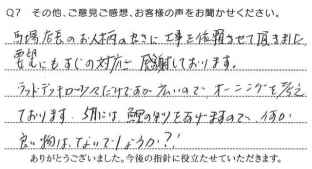 Q7 その他、ご意見ご感想、お客様の声をお聞かせください。
馬場店長のお人柄の良さに工事を依頼させて頂きました
要望にもすぐの対応に感謝しております。
ウッドデッキローマスだけですが広いので オーニングを考え
ております。5月には鯉のぼりをあげますので、何か
良い物は、ないでしょうか?!
ありがとうございました。今後の指針に役立たせていただきます。